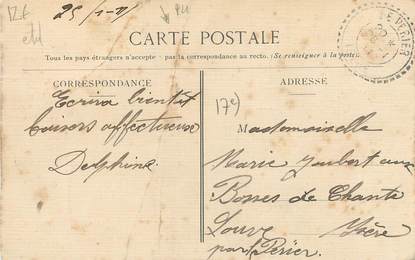 12€
25/1-11
CARTE POSTALE
Tous les pays étrangers n'acceptent pas la correspondance au recto. (Se renseigner à la poste)
CORRESPONDANCE
ADRESSE
LE PERIER
17e)
Ecrira bientôt
baisers affectueux
Delphine
Mademoiselle
Marie Joubert aux
Bosses de Chante
Louve Isère
par le Périer.